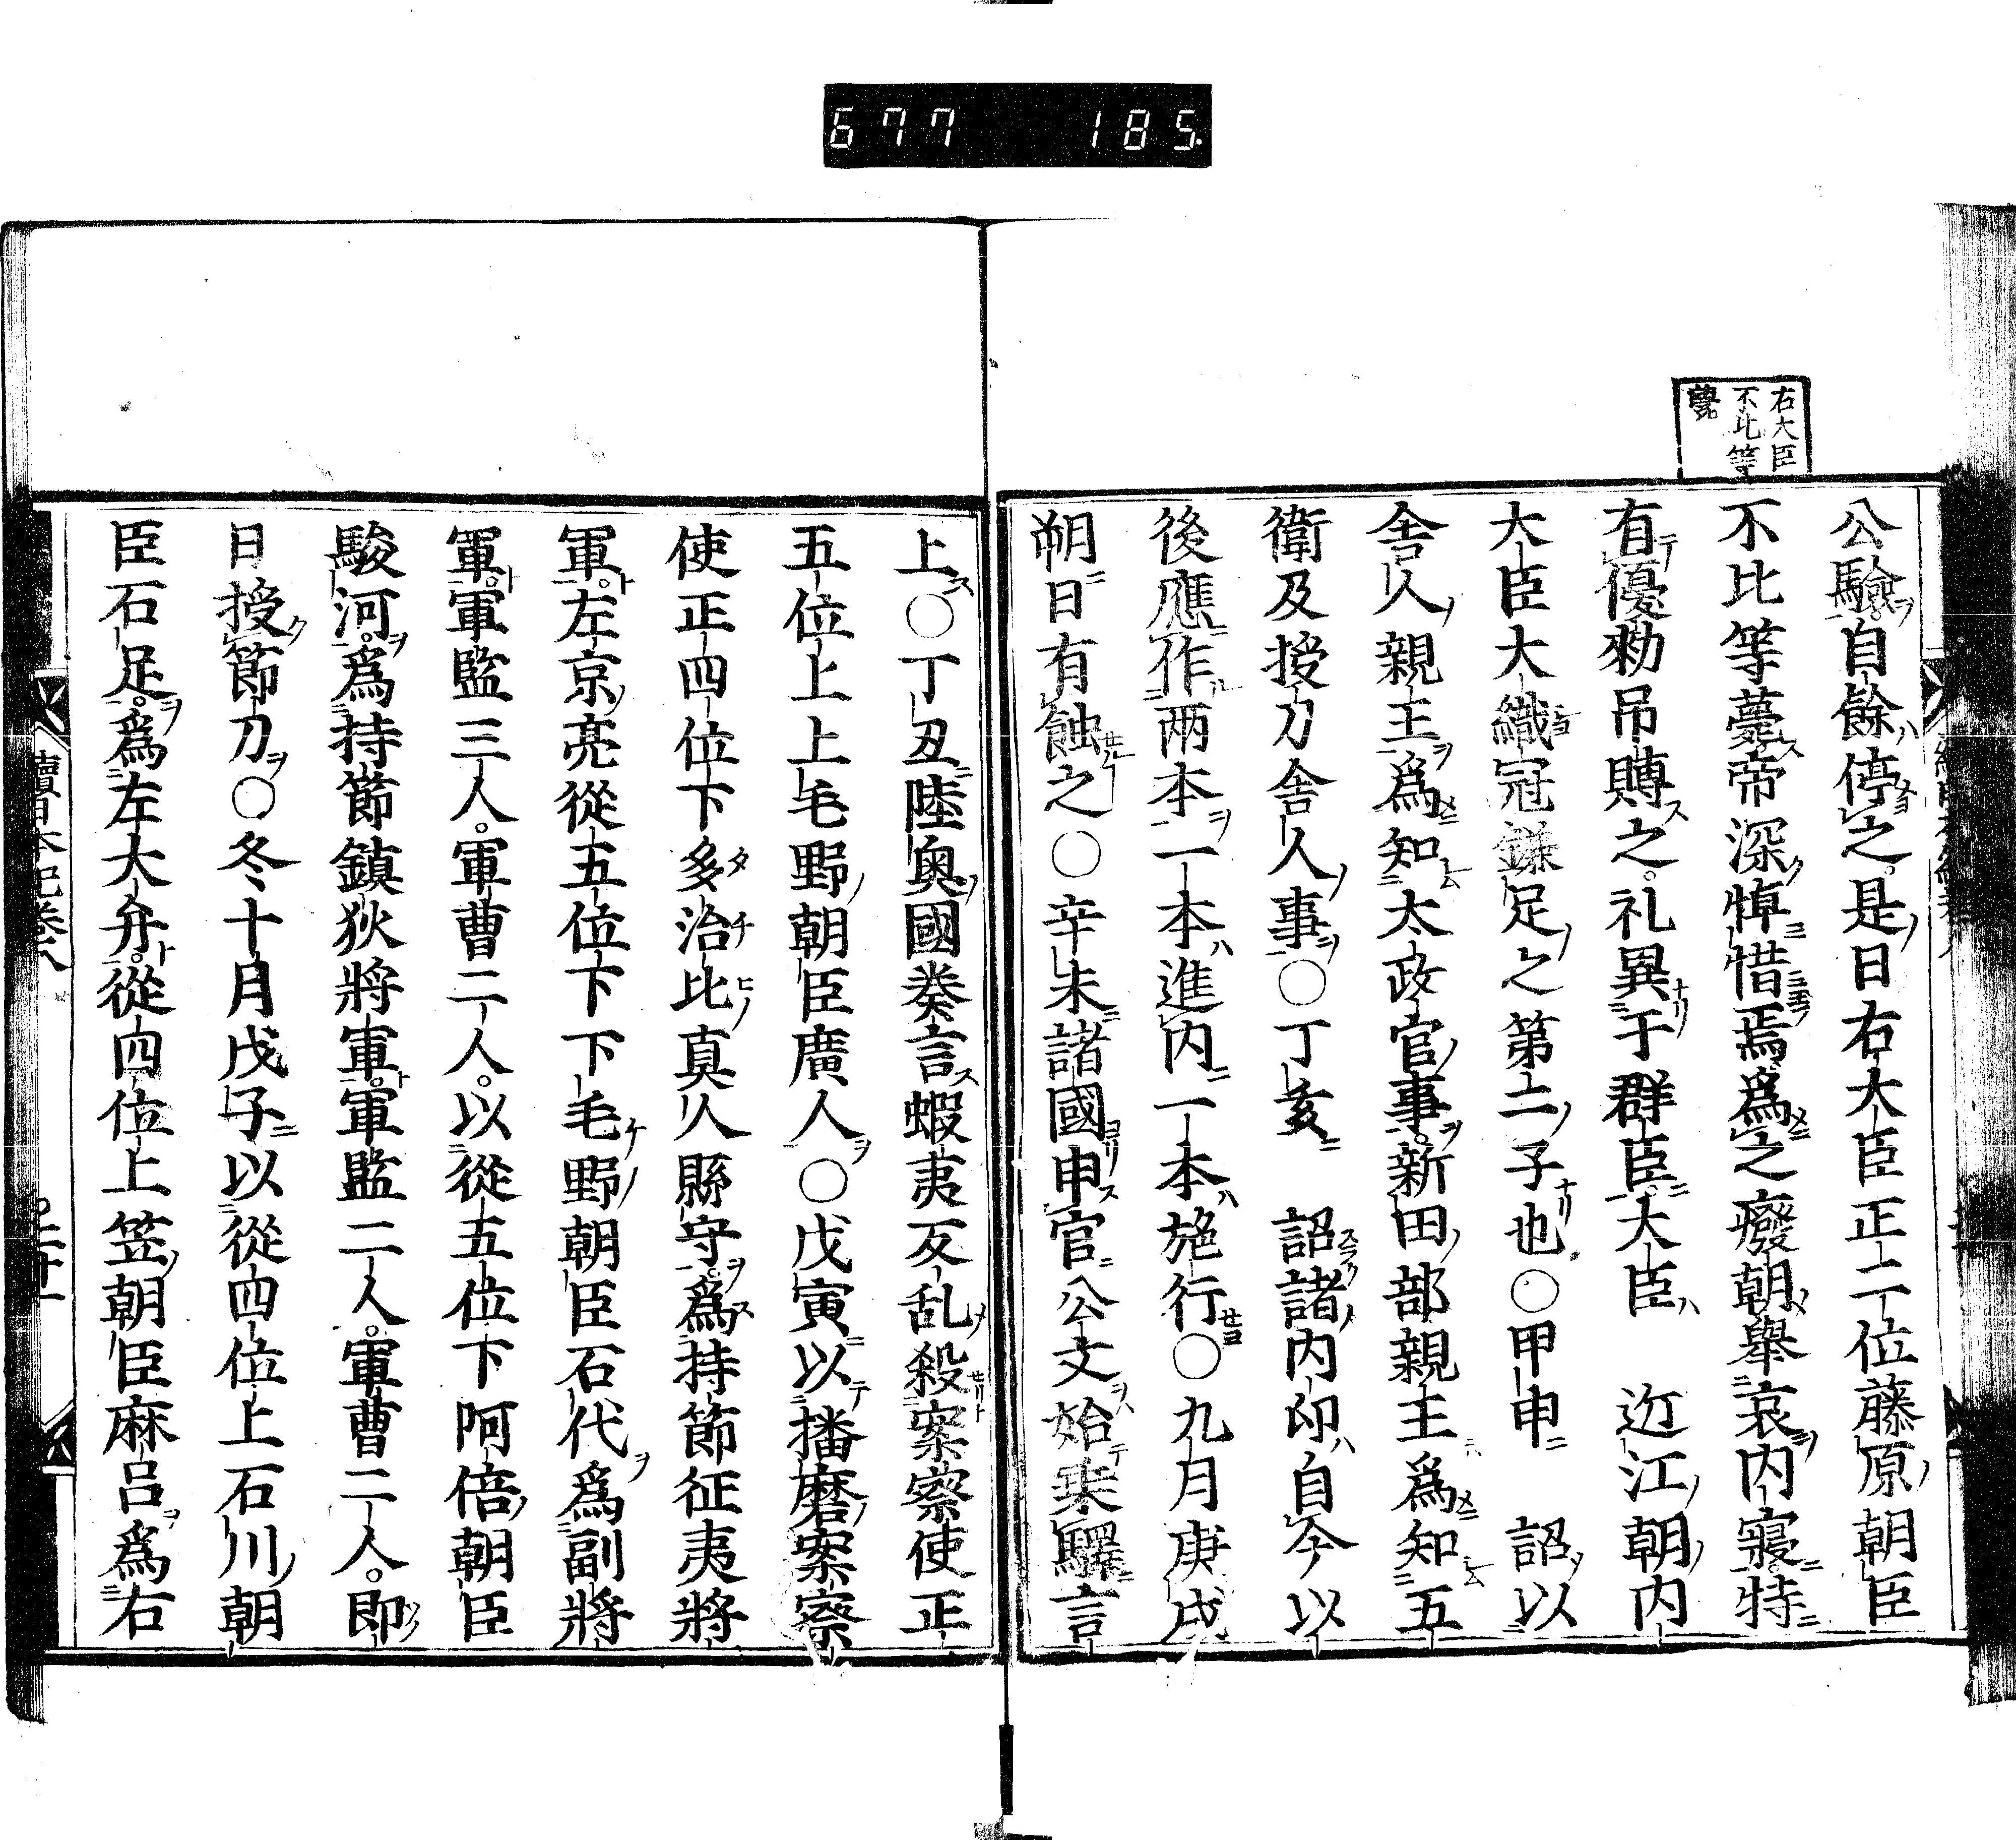 677 185
右大臣
不比等
薨
公驗自餘停之是日右大臣正二位藤原朝臣
不比等薨帝深悼惜焉爲之癈朝舉哀内寢特
有優勅吊賻之礼異于群臣大臣ハ近江朝内
大臣大織冠鎌足之第二子也○甲申詔以
舎人親王爲知太政官事新田部親王爲知五
衛及授刀舎人事○丁亥詔諸内印自今以
後應作兩本一本進内一本施行○九月庚戌
朔日有蝕之○辛未諸國申官公文始乘驛言
上○丁丑陸奥國奏言蝦夷反乱殺案察使正
五位上上毛野朝臣廣人○戊寅以播磨案察
使正四位下多治比真人縣守爲持節征夷將
軍左京亮從五位下下毛野朝臣石代爲副將
軍軍監三人軍曹二人以從五位下阿倍朝臣
駿河爲持節鎮狄將軍軍監二人軍曹二人即
日授節刀○冬十月戊子以從四位上石川朝
臣石足爲左大弁從四位上笠朝臣麻呂爲右
續日本紀卷八